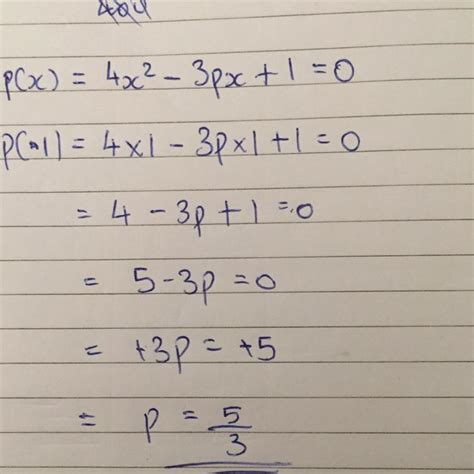 p(x) = 4x² - 3px + 1 = 0
p(1) = 4x1 - 3px1 + 1 = 0
= 4 - 3p + 1 = 0
= 5 - 3p = 0
= +3p = +5
= p = 5/3